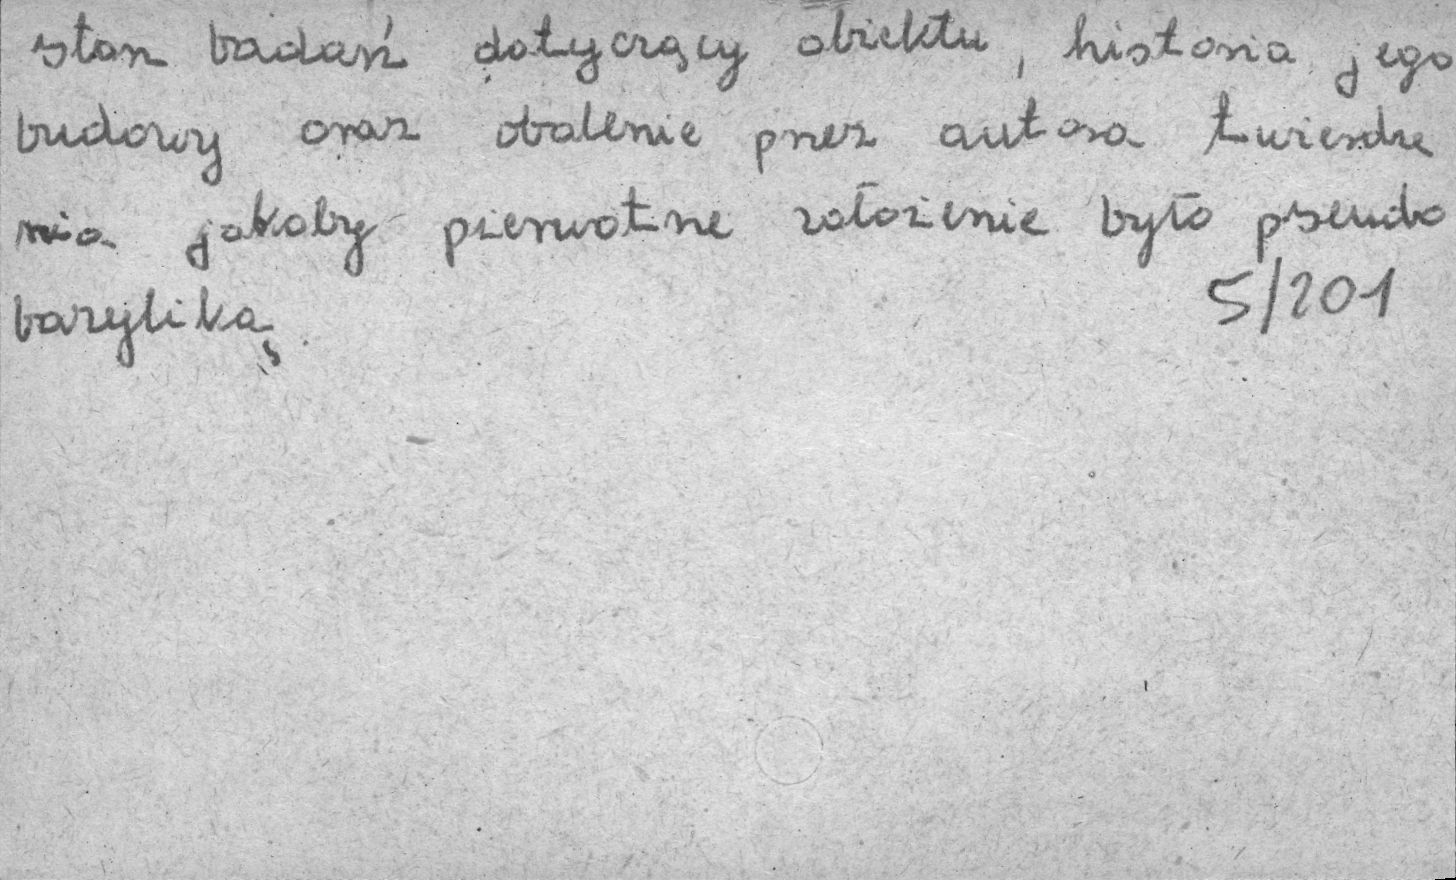 stan badań dotyczący obiektu, historia jego
budowy oraz obalenie przez autora twierdze
nia jakoby pierwotne założenie było pseudo
bazyliką.
5/201